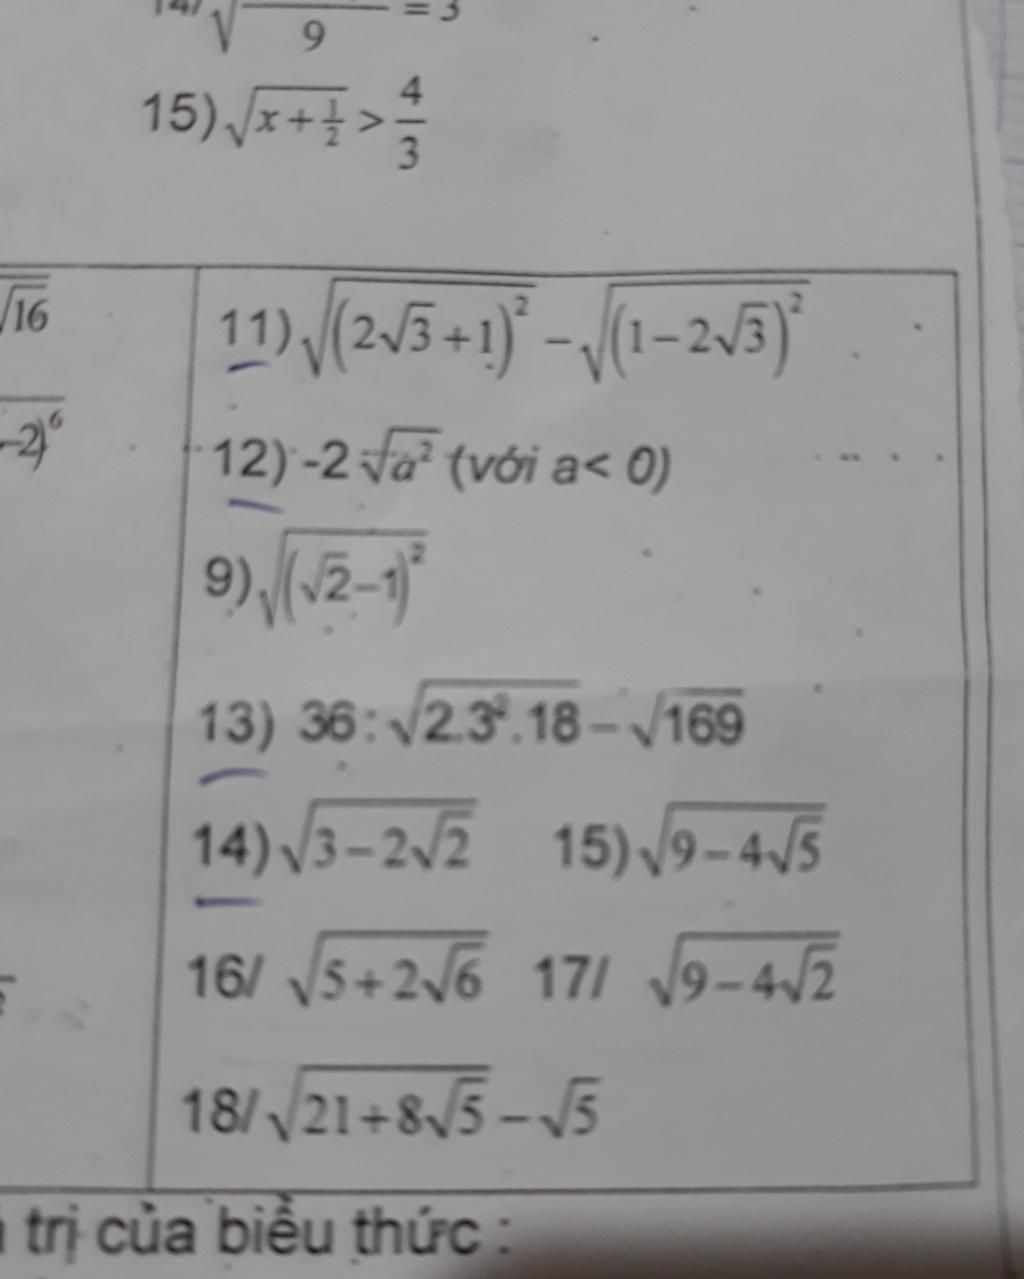 14/ √ 9 = 3
15) √(x + 1/2) > 4/3
√16
-2)⁶
11) √((2√3 + 1)²) − √((1 − 2√3)²)
12) -2√a² (với a< 0)
9) √((√2 − 1)²)
13) 36 : √(2.3².18) − √169
14) √(3 − 2√2) 15) √(9 − 4√5)
16/ √(5 + 2√6) 17/ √(9 − 4√2)
18/ √(21 + 8√5) − √5
trị của biểu thức :